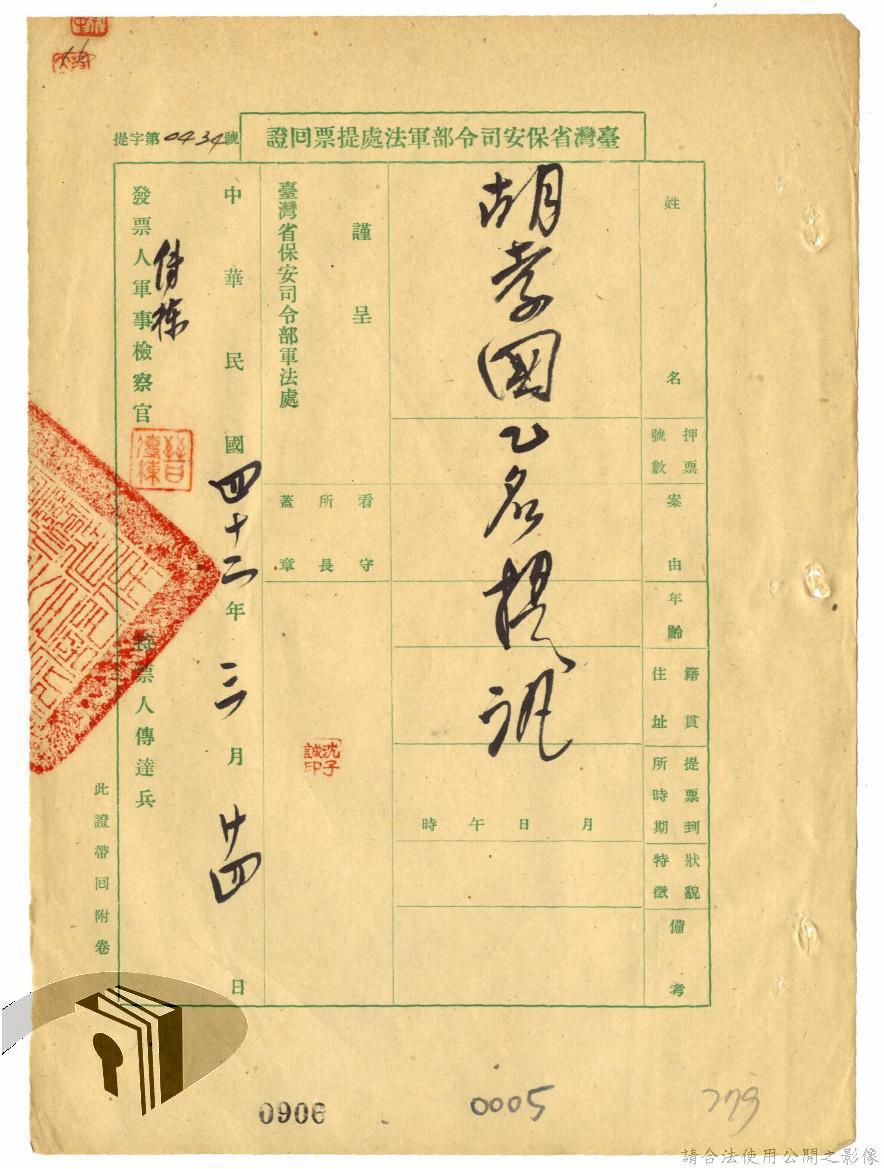 臺灣省保安司令部軍法處提票回證
提字第0434號
姓名
押票號數
案由
年齡
籍貫住址
提票到所時期
狀貌特徵
備考
胡孝國乙名提訊
月日午時
謹呈
臺灣省保安司令部軍法處
看守所長蓋章
沈子誠印
中華民國四十二年三月廿四日
發票人軍事檢察官
持票人傳達兵
此證帶回附卷
0906
0005
請合法使用公開之影像